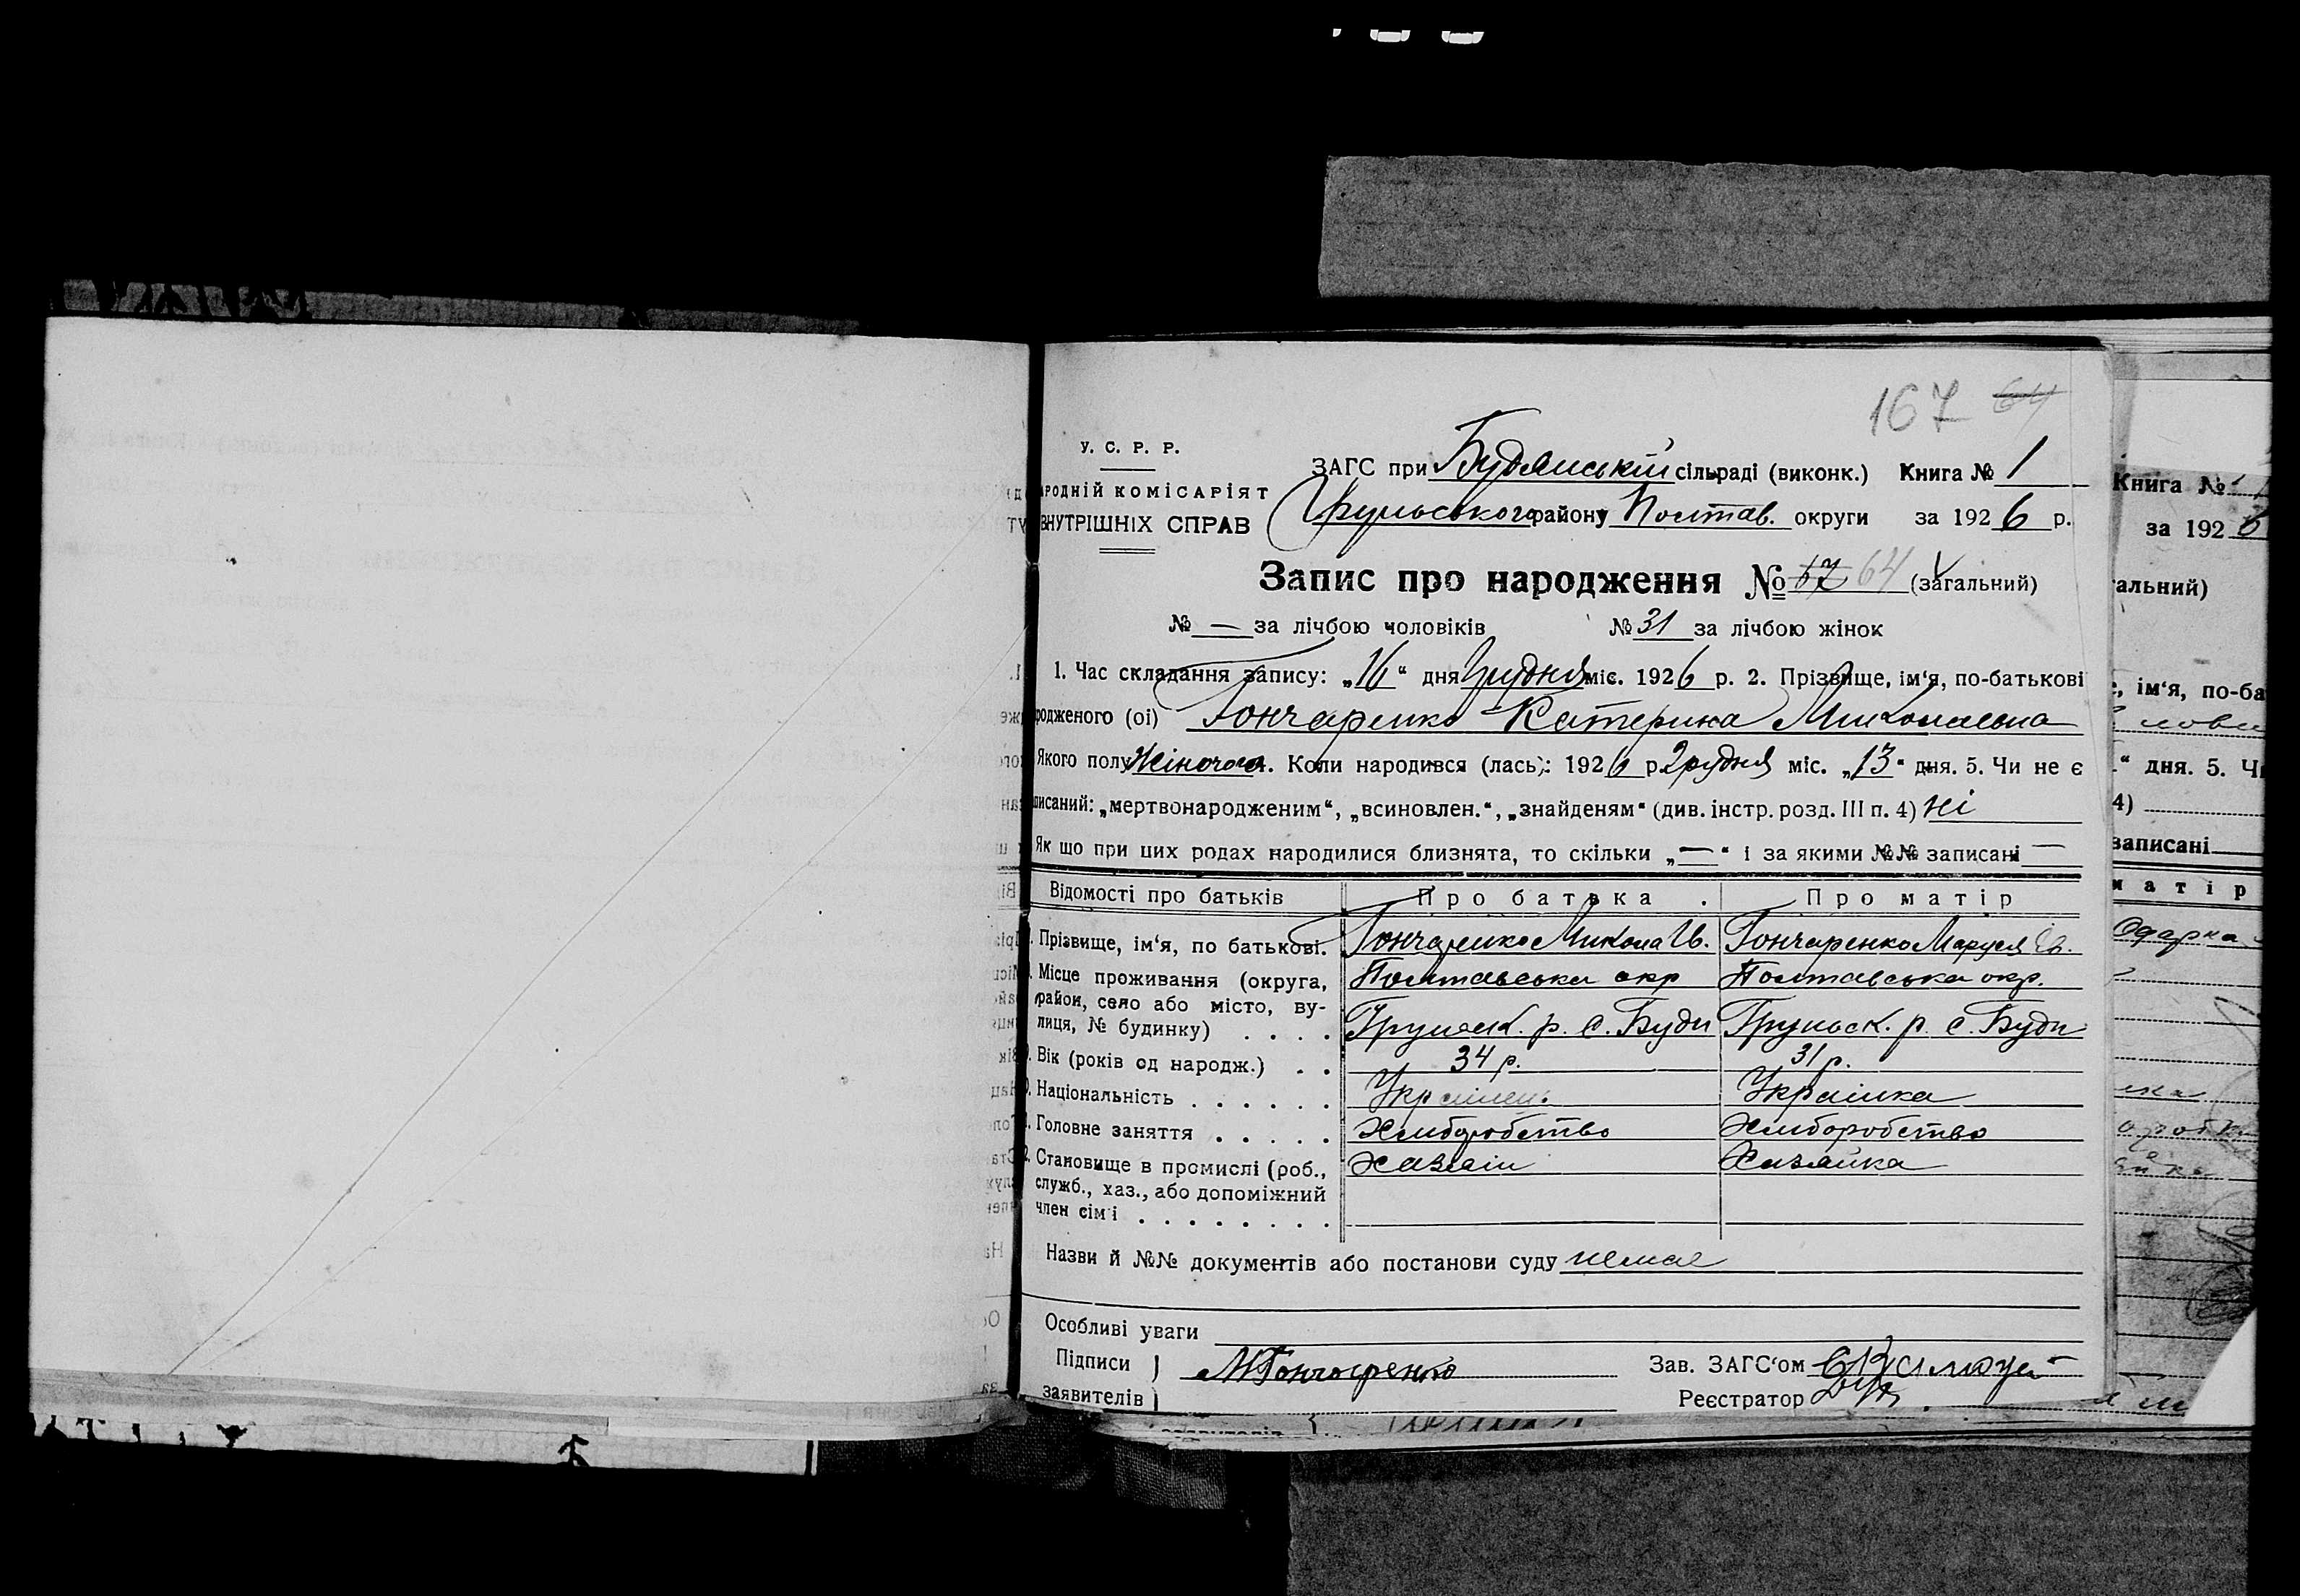 167 64
У. С. Р. Р.
ЗАГС при Будянській сільраді (виконк.) Книга № 1
РОДНІЙ КОМІСАРІЯТ
Грунського району Полтав. округи за 1926 р.
ВНУТРІШНІХ СПРАВ
Запис про народження № 67 64 (загальний)
№ — за лічбою чоловіків № 31 за лічбою жінок
1. Час складання запису: „16“ дня Грудня міс. 1926 р. 2. Прізвище, ім‘я, по-батькові
родженого (ої) Гончаренко Катерина Миколаевна
Якого полу Жіночого. Коли народився (лась): 1926 р. Грудня міс. „13“ дня. 5. Чи не є
писаний: „мертвонародженим“, „всиновлен.“, „знайденям“ (див. інстр. розд. III п. 4) ні
Як що при цих родах народилися близнята, то скільки „—“ і за якими №№ записані —
Відомості про батьків Про батька Про матір
Прізвище, ім‘я, по батькові. Гончаренко Микола Ів. Гончаренко Маруся Ів.
Місце проживання (округа, Полтавська окр Полтавська окр.
район, село або місто, ву-
лиця, № будинку) . . . . Грунськ. р. с. Буди Груньск. р. с. Буди
Вік (років од народж.) . . 34 р. 31 р.
Національність . . . . . . Українец. Українка
Головне заняття . . . . . Хлиборобство Хлиборобство
Становище в промислі (роб., Хазяін Хазяйка
служб., хаз., або допоміжний
член сім‘ї . . . . . . . .
Назви й №№ документів або постанови суду немае
Особливі уваги
Підписи М Гончаренко Зав. ЗАГС‘ом
заявителів Реєстратор
Книга №
за 1926
альний)
, ім‘я, по-ба
“ дня. 5. Чи
4)
записані
матір
Одарка